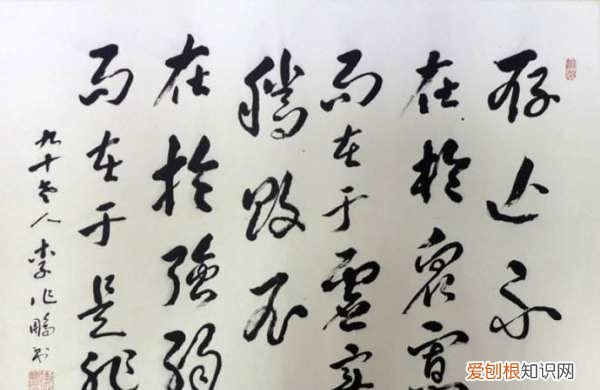 存亡不
在於眾寡
而在于虛实
勝敗不
在於強弱
而在于是非
九十老人李作鹏书
爱刨根知识网